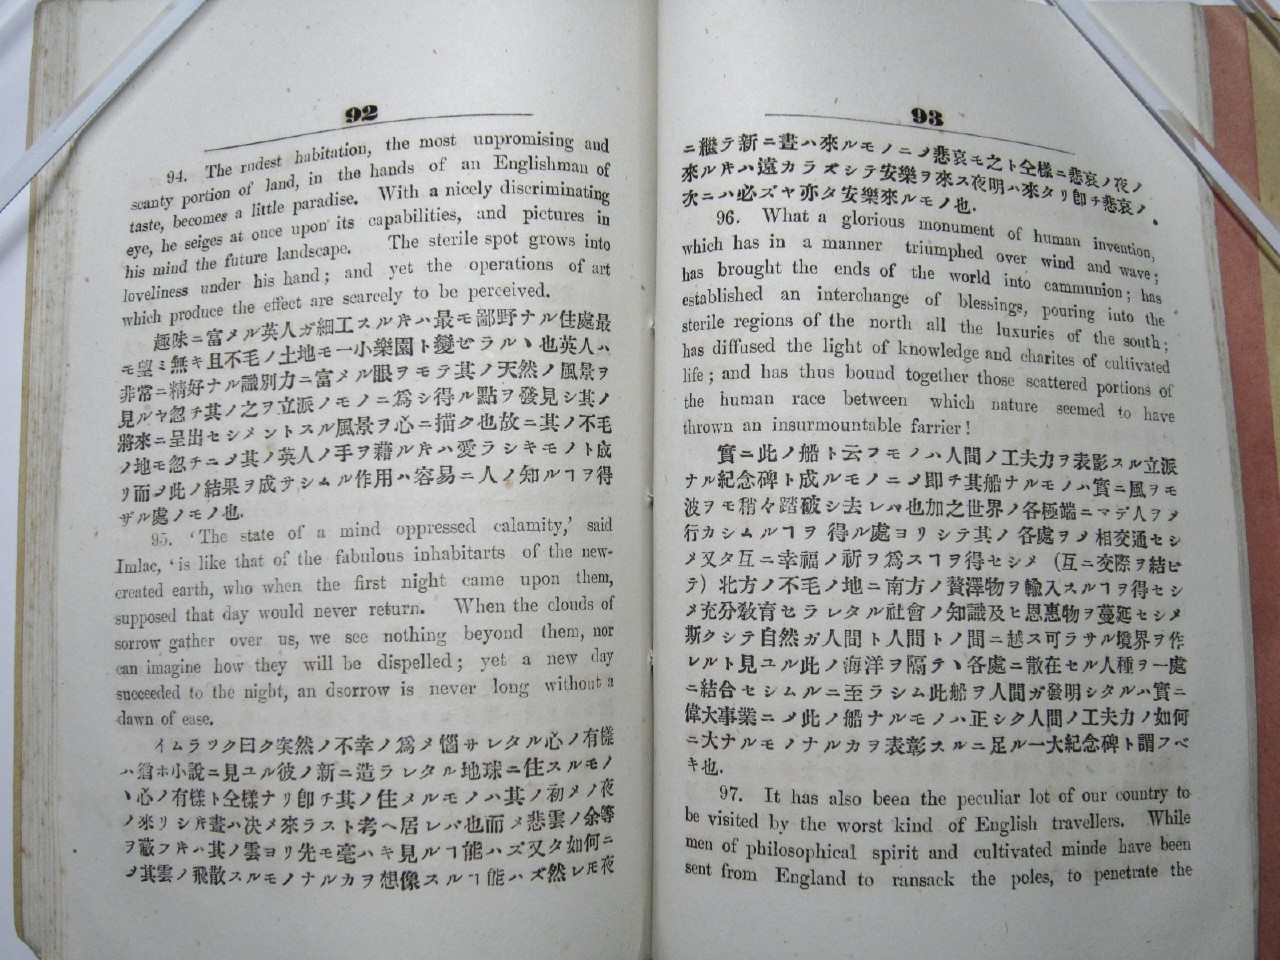 92
94. The rudest habitation, the most unpromising and
scanty portion of land, in the hands of an Englishman of
taste, becomes a little paradise. With a nicely discriminating
eye, he seiges at once upon its capabilities, and pictures in
his mind the future landscape. The sterile spot grows into
loveliness under his hand; and yet the operations of art
which produce the effect are scarcely to be perceived.
趣味ニ富メル英人ガ細工スル𪜈ハ最モ鄙野ナル住處最
モ望ミ無キ且不毛ノ土地モ一小樂園ト變ゼラルヽ也英人ハ
非常ニ精好ナル識別力ニ富メル眼ヲモテ其ノ天然ノ風景ヲ
見ルヤ忽チ其ノ之ヲ立派ノモノニ爲シ得ル點ヲ發見シ其ノ
將來ニ呈出セシメントスル風景ヲ心ニ描ク也故ニ其ノ不毛
ノ地モ忽チニ〆其ノ英人ノ手ヲ藉ル𪜈ハ愛ラシキモノト成
リ而〆此ノ結果ヲ成サシムル作用ハ容易ニ人ノ知ルヿヲ得
ザル處ノモノ也.
95. 'The state of a mind oppressed calamity,' said
Imlac, 'is like that of the fabulous inhabitarts of the new-
created earth, who when the first night came upon them,
supposed that day would never return. When the clouds of
sorrow gather over us, we see nothing beyond them, nor
can imagine how they will be dispelled; yet a new day
succeeded to the night, an dsorrow is never long without a
dawn of ease.
イムラツク曰ク突然ノ不幸ノ爲メ惱サレタル心ノ有樣
ハ猶ホ小說ニ見ユル彼ノ新ニ造ラレタル地球ニ住スルモノ
ヽ心ノ有樣ト全樣ナリ卽チ其ノ住メルモノハ其ノ初メノ夜
ノ來リシ𪜈晝ハ决メ來ラスト考ヘ居レバ也而〆悲雲ノ余等
ヲ蔽フ𪜈ハ其ノ雲ヨリ先モ毫ハキ見ルヿ能ハズ又タ如何ニ
〆其雲ノ飛散スルモノナルカヲ想像スルヿ能ハズ然レモ夜
93
ニ繼テ新ニ晝ハ來ルモノニ〆悲哀モ之ト仝樣ニ悲哀ノ夜ノ
來ル𪜈ハ遠カラズシテ安樂ヲ來ス夜明ハ來タリ卽チ悲哀ノ
次ニハ必ズヤ亦タ安樂來ルモノ也.
96. What a glorious monument of human invention,
which has in a manner triumphed over wind and wave;
has brought the ends of the world into cammunion; has
established an interchange of blessings, pouring into the
sterile regions of the north all the luxuries of the south;
has diffused the light of knowledge and charites of cultivated
life; and has thus bound together those scattered portions of
the human race between which nature seemed to have
thrown an insurmountable farrier!
實ニ此ノ船ト云フモノハ人間ノ工夫力ヲ表影スル立派
ナル紀念碑ト成ルモノニ〆即チ其船ナルモノハ實ニ風ヲモ
波ヲモ稍々踏破シ去レバ也加之世界ノ各極端ニマデ人ヲ〆
行カシムルヿヲ得ル處ヨリシテ其ノ各處ヲ〆相交通セシ
メ又タ互ニ幸福ノ祈ヲ爲スヿヲ得セシメ (互ニ交際ヲ結ビ
テ) 北方ノ不毛ノ地ニ南方ノ贅澤物ヲ輸入スルヿヲ得セシ
メ充分敎育セラレタル社會ノ知識及ヒ恩惠物ヲ蔓延セシメ
斯クシテ自然ガ人間ト人間トノ間ニ越ス可ラサル境界ヲ作
レルト見ユル此ノ海洋ヲ隔テヽ各處ニ散在セル人種ヲ一處
ニ結合セシムルニ至ラシム此船ヲ人間ガ發明シタルハ實ニ
偉大事業ニ〆此ノ船ナルモノハ正シク人間ノ工夫力ノ如何
ニ大ナルモノナルカヲ表彰スルニ足ル一大紀念碑ト謂フベ
キ也.
97. It has also been the peculiar lot of our country to
be visited by the worst kind of English travellers. While
men of philosophical spirit and cultivated minde have been
sent from England to ransack the poles, to penetrate the